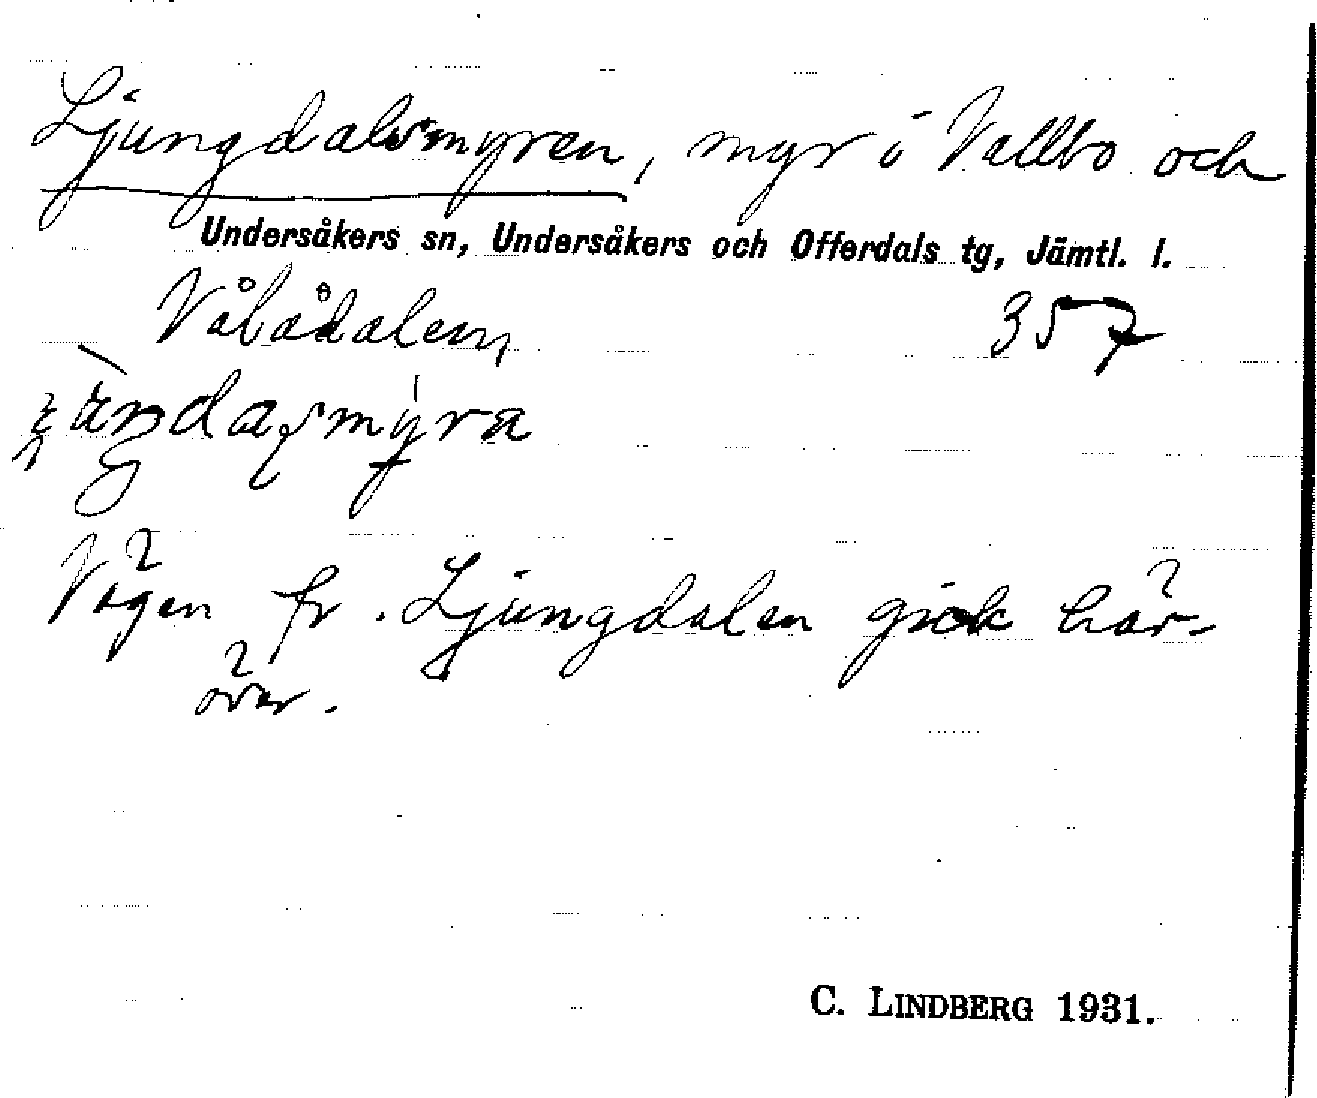 Ljungdalsmyren, myr i Vallbo och
Undersåkers sn, Undersåkers och Offerdals tg, Jämtl. l.
Vålådalen, 357
Vägen fr. Ljungdalen gick här-
över.
C. LINDBERG 1931.